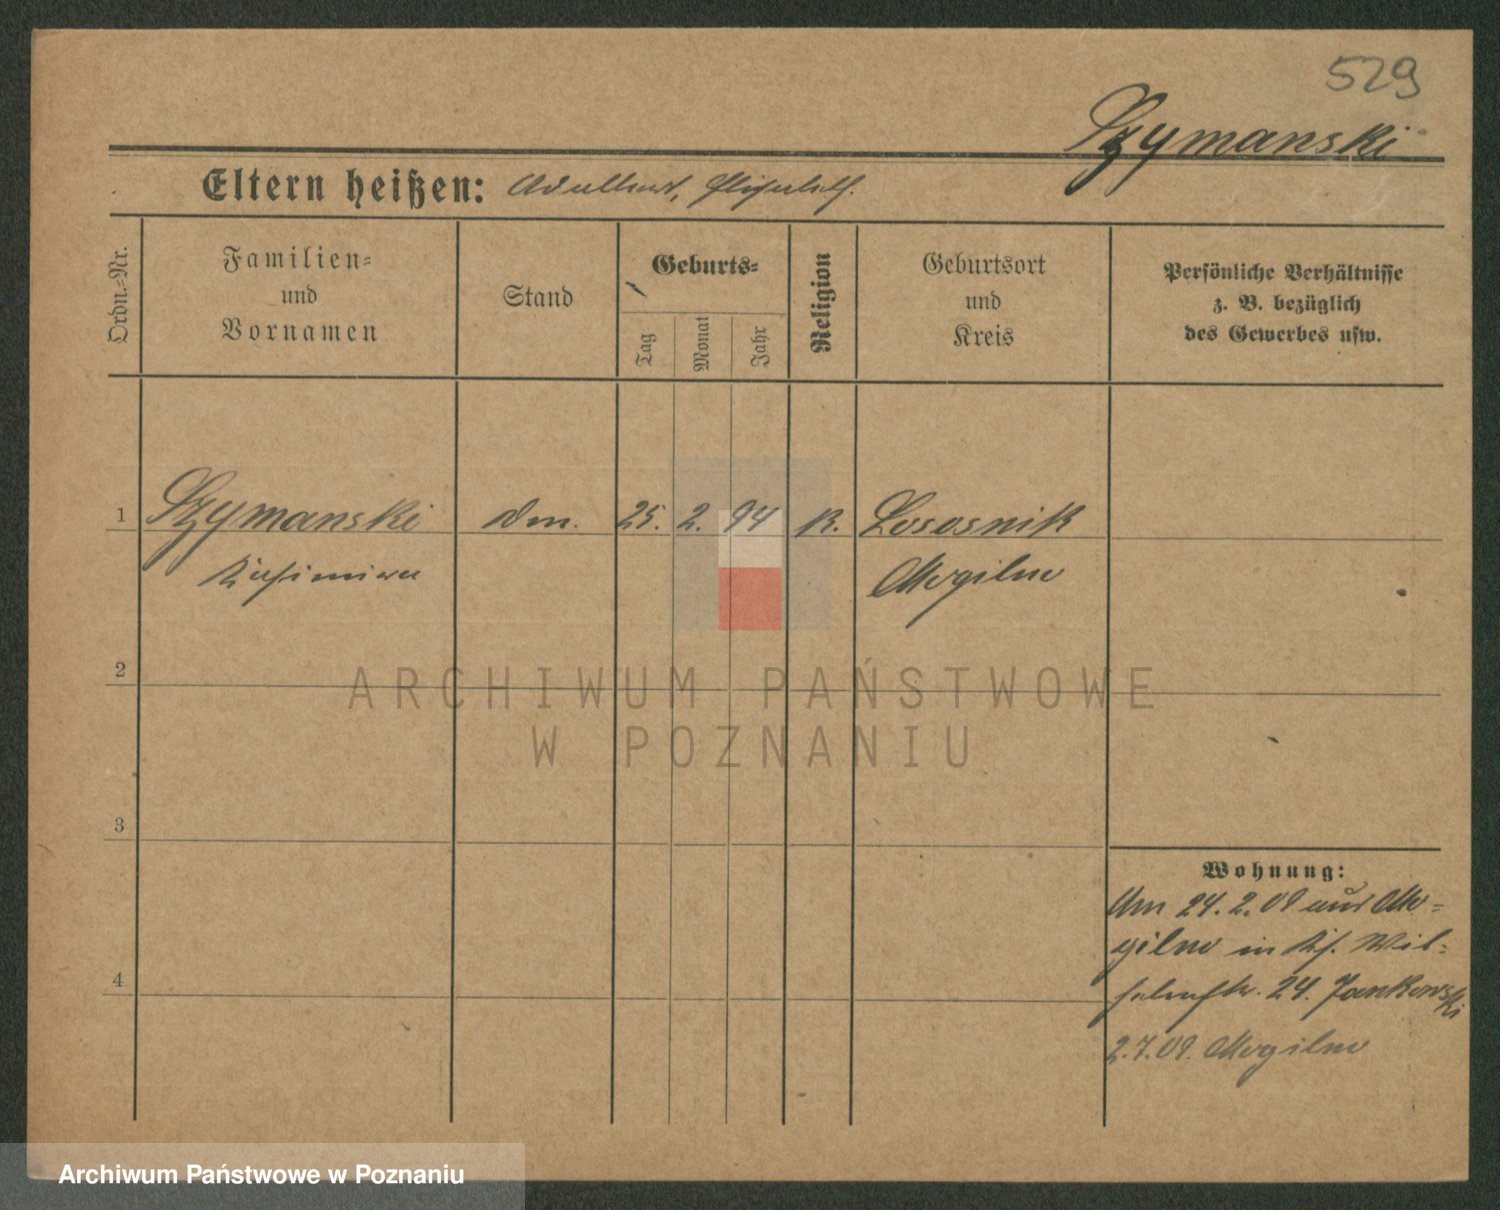 529
Szymanski
Eltern heißen: Adalbert, Elisabeth.
Ordn.-Nr.
Familien-
und
Vornamen
Stand
Geburts-
Tag
Monat
Jahr
Religion
Geburtsort
und
Kreis
Persönliche Verhältnisse
z. B. bezüglich
des Gewerbes usw.
1 Szymanski 25. 2. 94 K. Lososnik
Kasimira Mogilno
2
ARCHIWUM PAŃSTWOWE
W POZNANIU
3
Wohnung:
Am 24.2.09 aus Mo-
gilno in Wil-
helmstr. 24. Jankowski
4
2.7.09. Mogilno
Archiwum Państwowe w Poznaniu